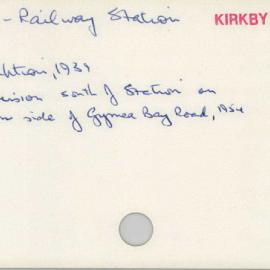 - Railway Station
KIRKBY
, 1939
south of Station on
side of Gymea Bay Road, 1954